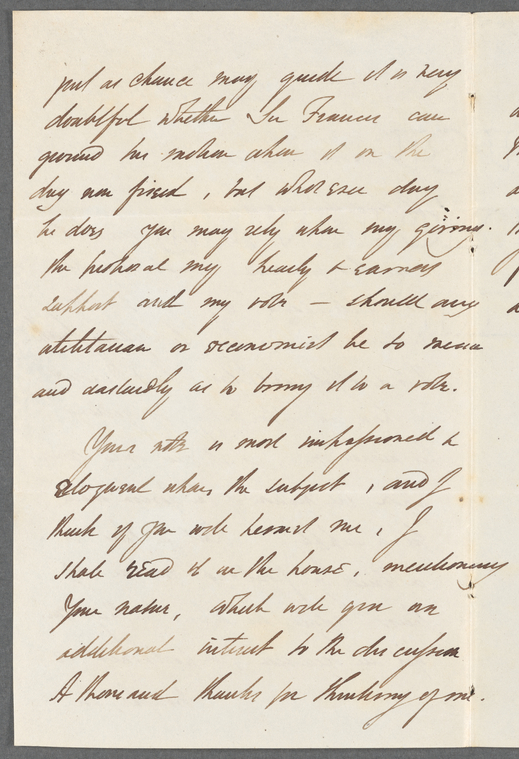 just as chance may guide it is very
doubtful whether Sir Francis can
ground his motion upon it on the
day now fixed, but whatever day
he does you may rely upon my giving
the proposal my hearty & earnest
support and my vote — should any
utilitarian or oeconomist be so mean
and dastardly as to bring it to a vote.
Your note is most impassioned &
eloquent upon the subject, and I
think if you will permit me, I
shall read it in the house, mentioning
your name, which will give an
additional interest to the discussion
A thousand thanks for thinking of me.